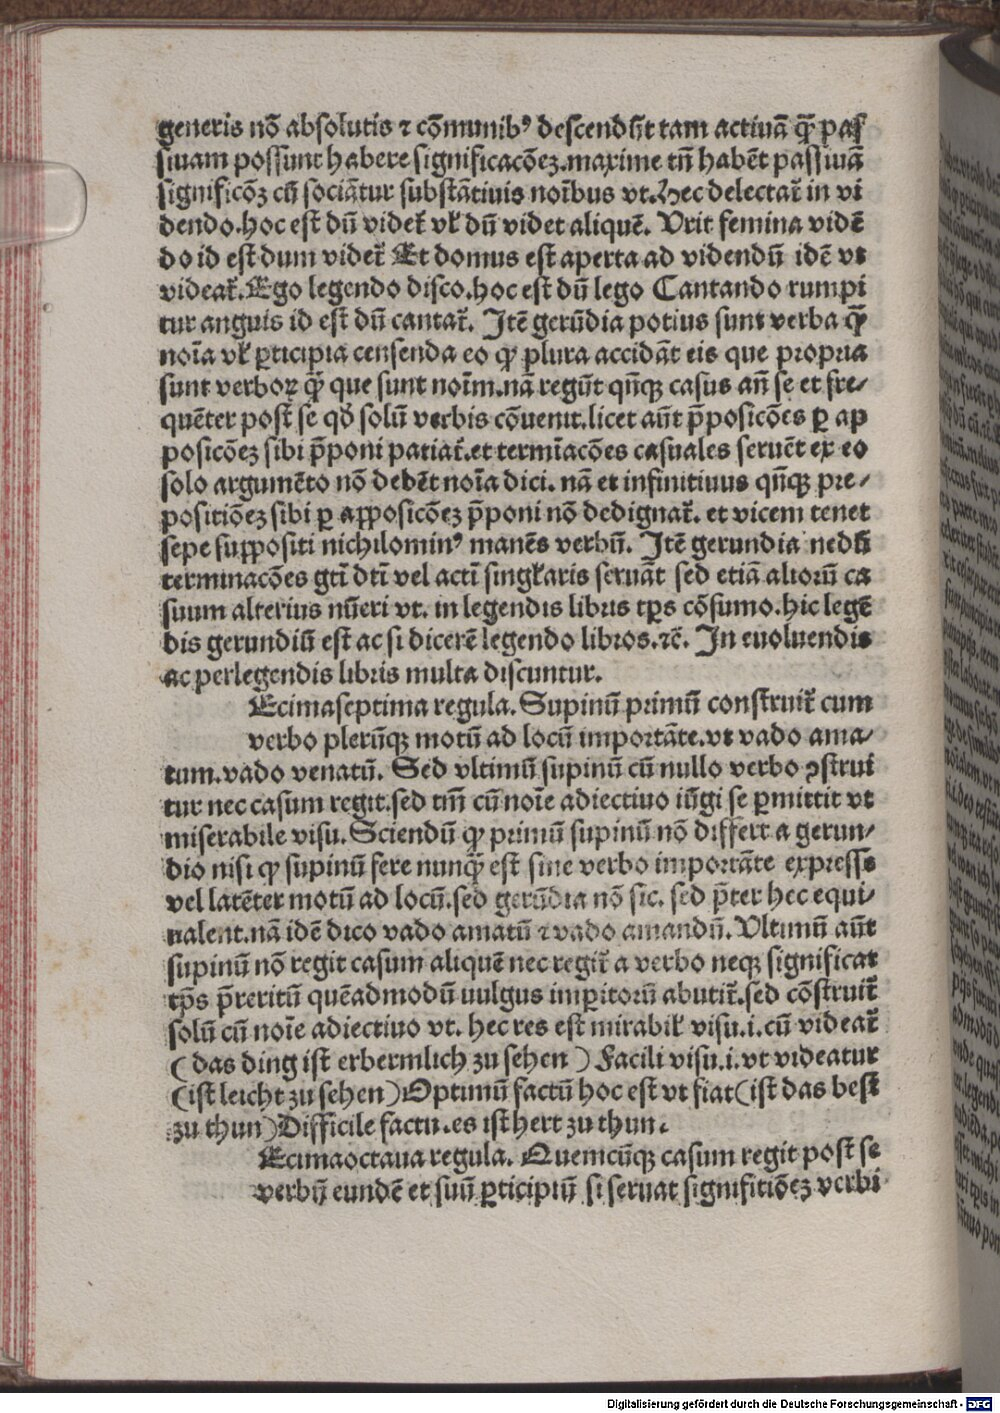 generis nõ absolutis ⁊ cõmunibꝰ descendũt tam actiuã ꝙ̃ pas
siuam possunt habere significacõeꝫ.maxime tñ habẽt passiuã
significõꝫ cũ sociãtur substãtiuis noĩbus vt.Hec delectat̃ in vi
dendo.hoc est dũ videt̃ vl̃ dũ videt aliquẽ. Vrit femina vidẽ
do id est dum videt̃ Et domus est aperta ad videndũ idẽ vt
videat̃.Ego legendo disco.hoc est dũ lego Cantando rumpi
tur anguis id est dũ cantat̃. Itẽ gerũdia potius sunt verba ꝙ̃
noĩa vl̃ ꝑticipia censenda eo ꝙ plura accidãt eis que propria
sunt verboꝝ ꝙ̃ que sunt noĩm.nã regũt qñqꝫ casus añ se et fre⸗
quẽter post se qď solũ verbis cõuenit.licet aũt p̃posicões ꝑ ap
posicõeꝫ sibi p̃poni patiat̃.et termĩacões casuales seruẽt ex eo
solo argumẽto nõ debẽt noĩa dici. nã et infinitiuus qñqꝫ pre⸗
positiõeꝫ sibi ꝑ apposicõeꝫ p̃poni nõ dedignat̃. et vicem tenet
sepe suppositi nichilominꝰ manẽs verbũ. Itẽ gerundia nedũ
terminacões gtĩ dtĩ vel actĩ singl̃aris seruãt sed etiã aliorũ ca
suum alterius nũeri vt. in legendis libris tp̃s cõsumo.hic legẽ
dis gerundiũ est ac si dicerẽ legendo libros.⁊c̃. In euoluendis
ac perlegendis libris multa discuntur.
Ecimaseptima regula. Supinũ primũ construit̃ cum
verbo plerũqꝫ motũ ad locũ importãte.vt vado ama⸗
tum.vado venatũ. Sed vltimũ supinũ cũ nullo verbo ꝯstrui
tur nec casum regit.sed tm̃ cũ noĩe adiectiuo iũgi se ꝑmittit vt
miserabile visu. Sciendũ ꝙ primũ supinũ nõ differt a gerun⸗
dio nisi ꝙ supinũ fere nunꝙ̃ est sine verbo importãte expresse
vel latẽter motũ ad locũ.sed gerũdia nõ sic. sed p̃ter hec equi⸗
ualent.nã idẽ dico vado amatũ ⁊ vado amandũ. Vltimũ aũt
supinũ nõ regit casum aliquẽ nec regit̃ a verbo neqꝫ significat
tp̃s p̃teritũ quẽadmodũ uulgus imꝑitorũ abutit̃.sed cõstruit̃
solũ cũ noĩe adiectiuo vt. hec res est mirabil̃ visu.i.cũ videat̃
( das ding ist erbermlich zu sehen ) Facili visu.i.vt videatur
(ist leicht zu sehen) Optimũ factũ hoc est vt fiat(ist das best
zu thun) Difficile factu.es ist hert zu thun.
Ecimaoctaua regula. Quemcũqꝫ casum regit post se
verbũ eundẽ et suũ ꝑticipiũ si seruat signifitiõeꝫ verbi
Digitalisierung gefördert durch die Deutsche Forschungsgemeinschaft - DFG